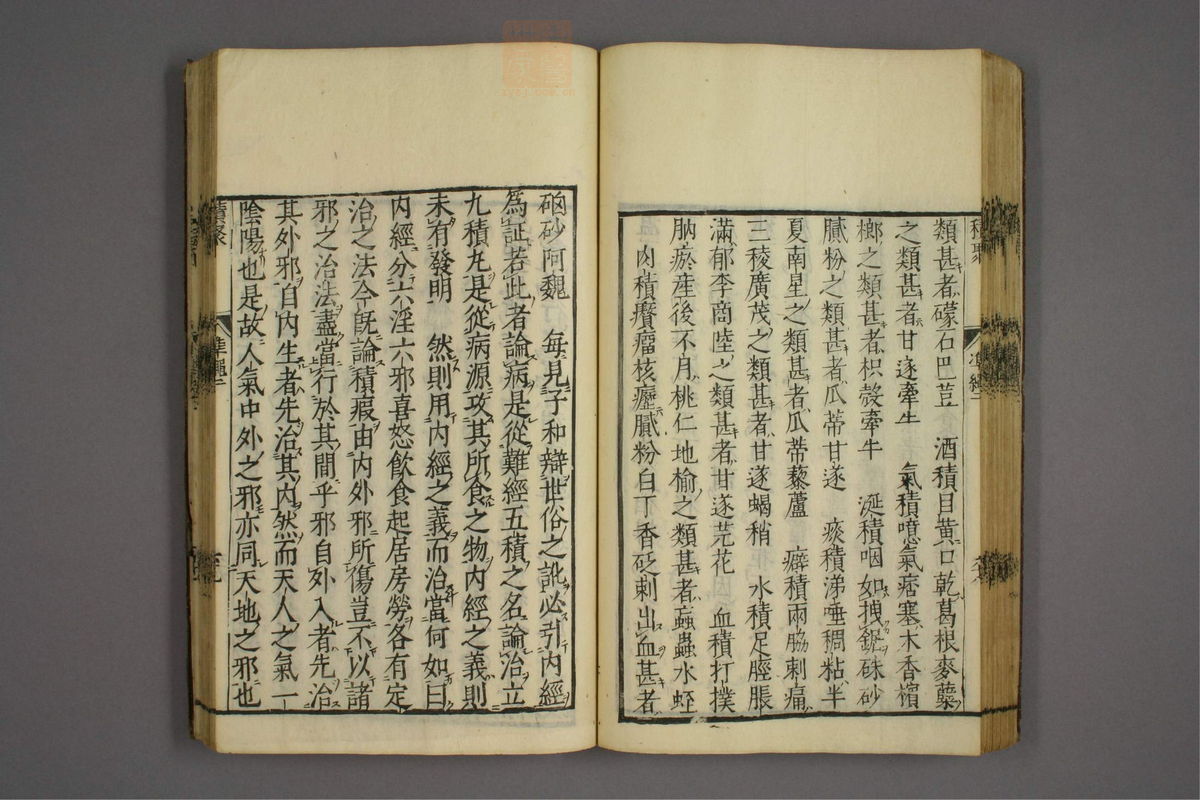 類甚者礞石巴荳　酒積目黄口乾葛根麥蘗
之類甚者甘遂牽生　氣積噫氣痞塞木香檳
榔之類甚者枳殼牽牛　涎積咽如拽鋸硃砂
膩粉之類甚者瓜蒂甘遂　痰積涕唾稠粘半
夏南星之類甚者瓜蒂藜蘆　癖積兩脇刺痛
三稜廣茂之類甚者甘遂蝎稍　水積足脛脹
滿郁李商陸之類甚者甘遂芫花　血積打撲
肭瘀産後不月桃仁地榆之類甚者蝱蟲水蛭
肉積癭瘤核癧膩粉白丁香砭刺出血甚者
硇砂阿魏　每見子和辯世俗之訛必引内經
爲証若此者論病是從難經五積之名論治立
九積九是從病源攻其所食之物内經之義則
未有發明　然則用内經之義而治當何如曰
内經分六淫六邪喜怒飲食起居房勞各有定
治之法今既論積瘕由内外邪所傷豈不以諸
邪之治法盡當行於其間乎邪自外入者先治
其外邪自内生者先治其内然而天人之氣一
陰陽也是故人氣中外之邪亦同天地之邪也
積聚
準繩二